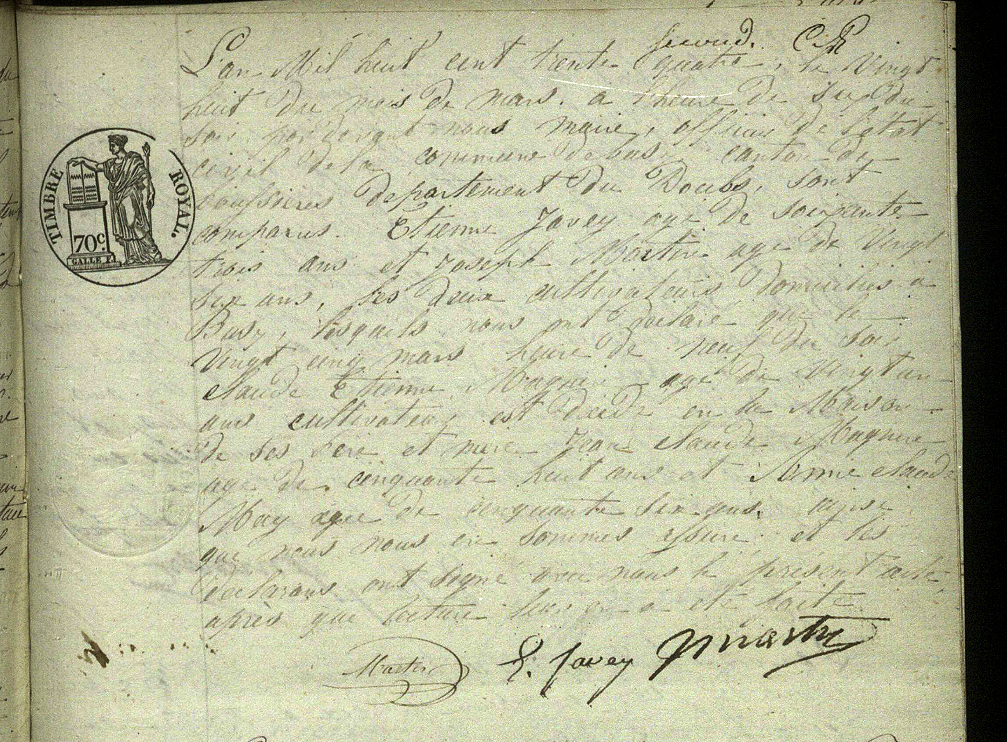 second. C R
L'an Mil huit cent trente quatre, le Vingt
huit du mois de mars, a l'heure de six du
soir par devant nous maire, officier de l'état
civil de la commune de busy canton de
boussieres departement du Doubs, sont
comparus. Etienne Javey age de soixante
trois ans et Joseph Martin age de Vingt
six ans, les deux cultivateurs domicilies a
Busy, lesquels nous ont declaré que le
Vingt cinq mars heure de neuf du soir
claude Etienne Magnin agé de Vingt un
ans cultivateur est decedé en la Maison
de ses pere et mere Jean claude Magnin
age de cinquante huit ans et Anne claude
May agee de cinquante six ans. ainsi
que nous nous en sommes assuré. et les
declarans ont signé avec nous le present acte
après que lecture leur en a été faite
Martin E. Javey Martin
TIMBRE ROYAL.
70c.